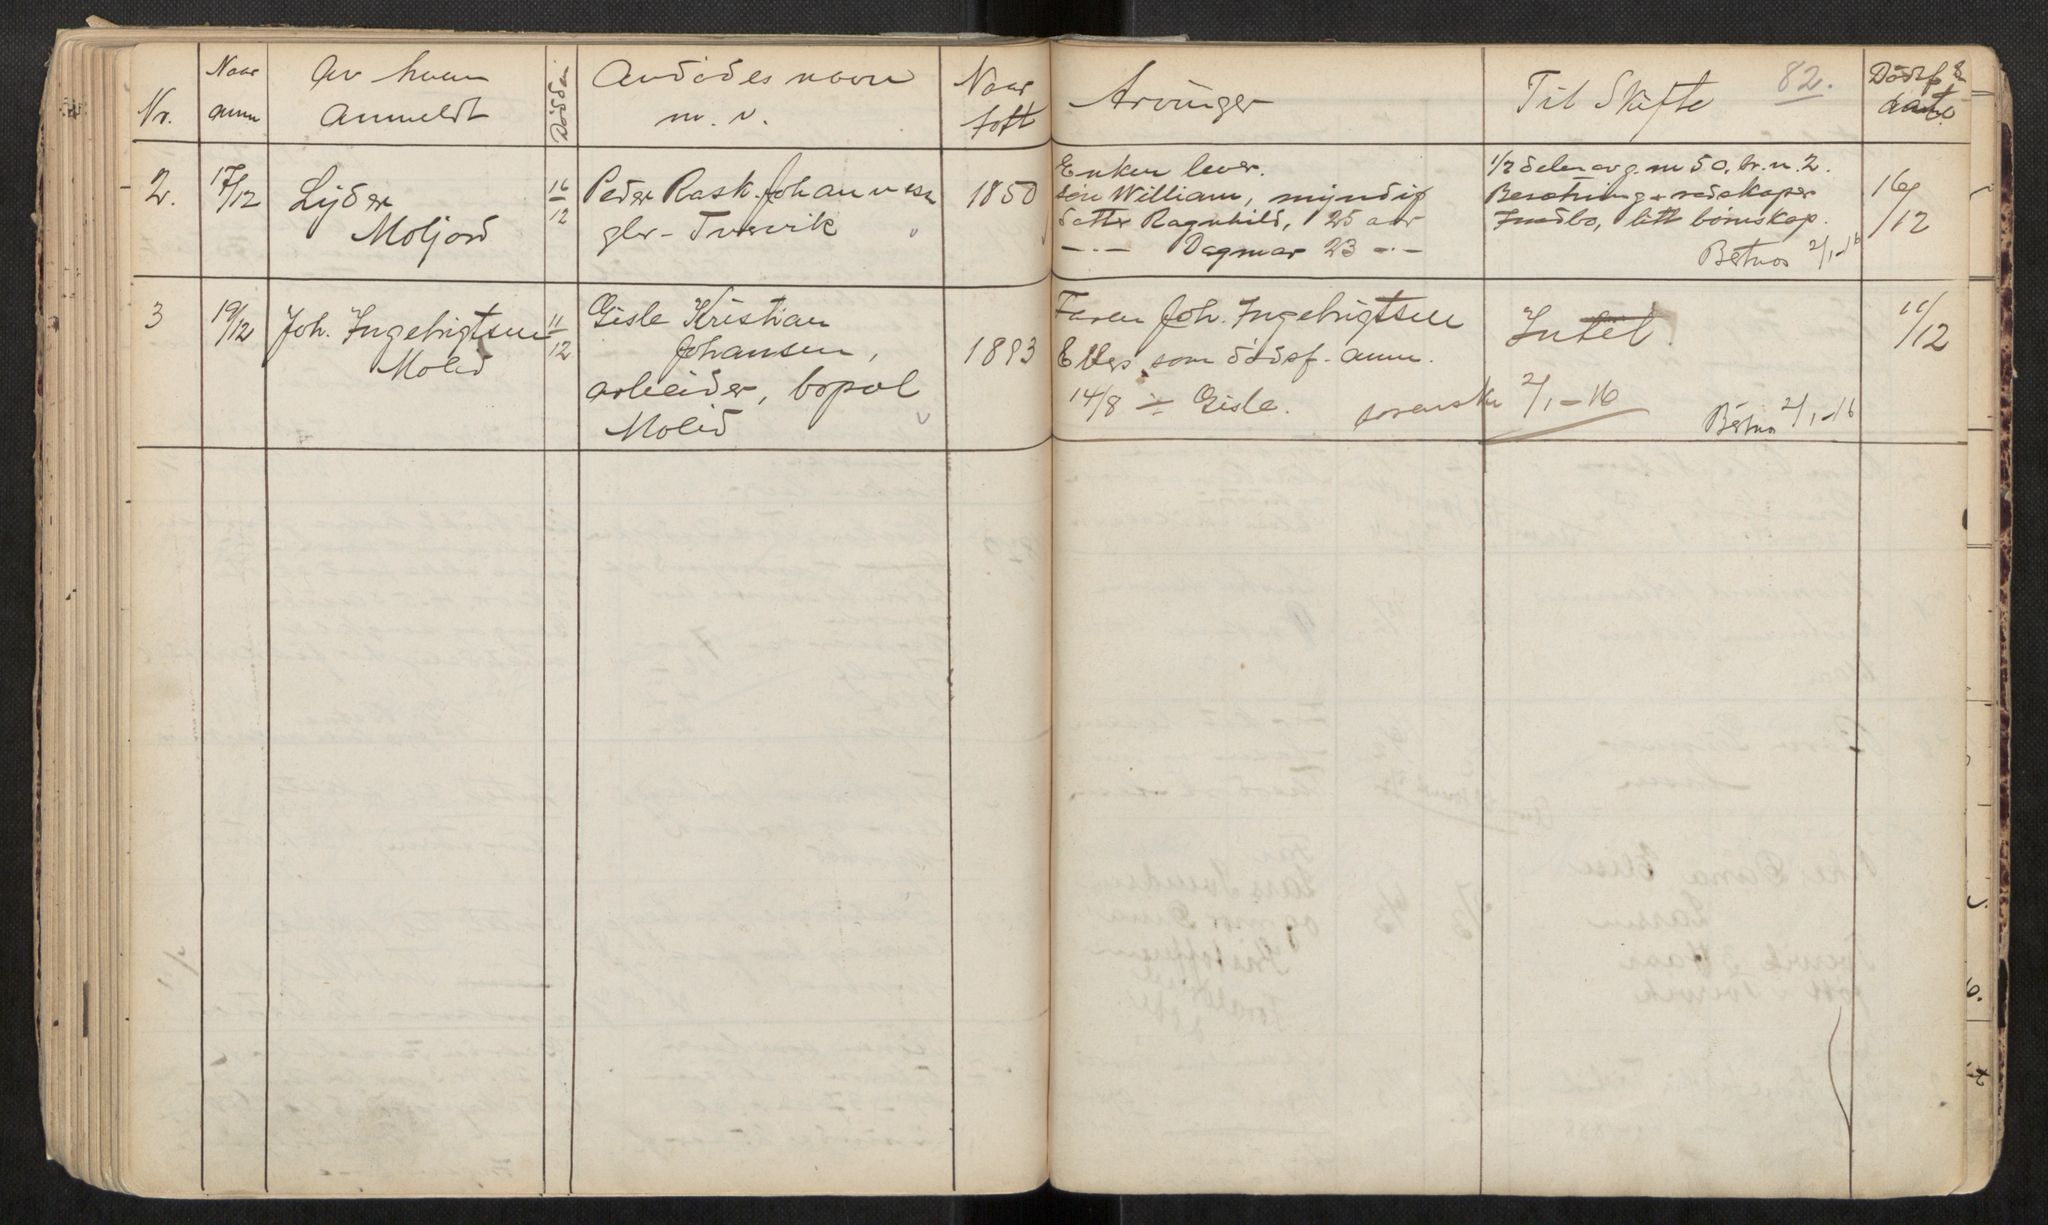 Nr.
Naar
anm
Av hvem
Anmeldt
Dödsdn
Avdödes navn
m. v.
Naar
født
Arvinger
Til Skifte
82.
Dödsf
2. 17/12 Lyder
Moljord
16/12
Peder Rask Johannessen
gbr. Tverrvik
1850
Enken lever.
søn William, myndig
datter Ragnhild, 25 aar
—"— Dagmar 23 —"—
1/2 delen av g. n. 50, br. n. 2.
Besetning + redskaper
Indbo, litt bornskap.
2/1-16
16/12
3 19/12 Joh. Ingebrigtsen
Molid
11/12
Gisle Kristian
Johansen,
arbeider, bopæl
Molid
1893
Faren Joh. Ingebrigtsen
Ellers som dødsf. anm.
14/8 ÷ Gisle.
sorenskr 2/1-16
Intet.
2/1-16
11/12